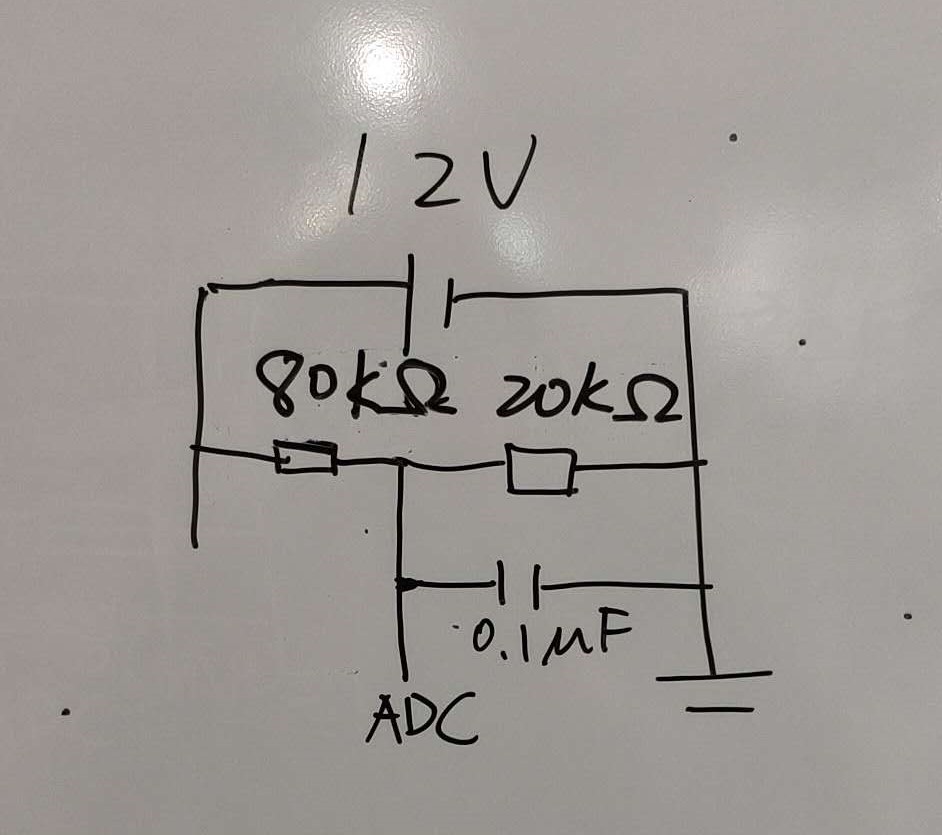 12V
80kΩ 20kΩ
0.1μF
ADC